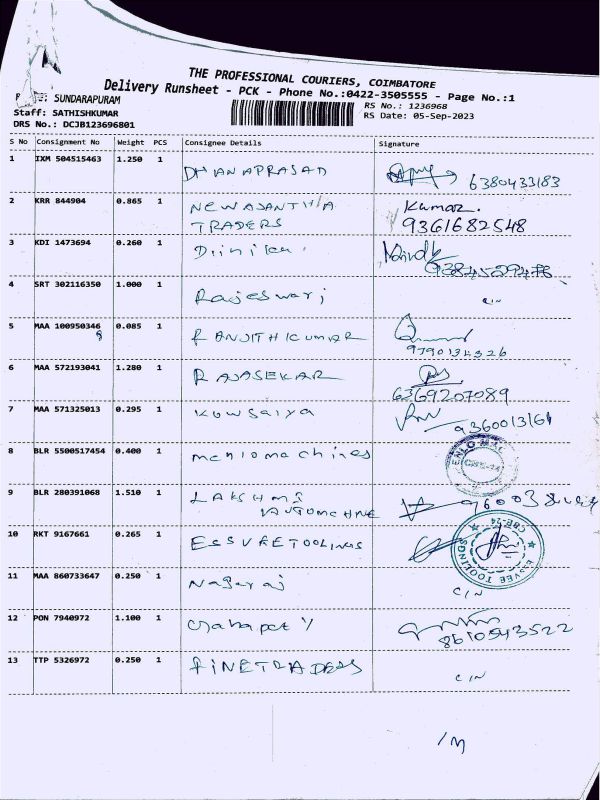 THE PROFESSIONAL COURIERS, COIMBATORE
Delivery Runsheet - PCK - Phone No.:0422-3505555 - Page No.:1
SUNDARAPURAM
RS No.: 1236968
Staff: SATHISHKUMAR
RS Date: 05-Sep-2023
DRS No.: DCJB123696801
S No Consignment No Weight PCS Consignee Details Signature
1 IXM 504515463 1.250 1 DHANAPRASAD 6380433183
2 KRR 844904 0.865 1 NEWAJANTHA Kumar.
TRADERS 9361682548
3 KDI 1473694 0.260 1
4 SRT 302116350 1.000 1 Rajeswari C/N
5 MAA 100950346 0.085 1 RANJITHKUMAR
8 9790134326
6 MAA 572193041 1.280 1 RAJASEKAR
6369207089
7 MAA 571325013 0.295 1 Kowsalya 9360013161
8 BLR 5500517454 0.400 1
9 BLR 280391068 1.510 1 LAKSHMI
10 RKT 9167661 0.265 1 ESSVEETOOLINGS
ESSVEE TOOLINGS
CBE-24
11 MAA 860733647 0.250 1 Nagaraj C/N
12 PON 7940972 1.100 1 8610543522
13 TTP 5326972 0.250 1 FINETRADERS C/N